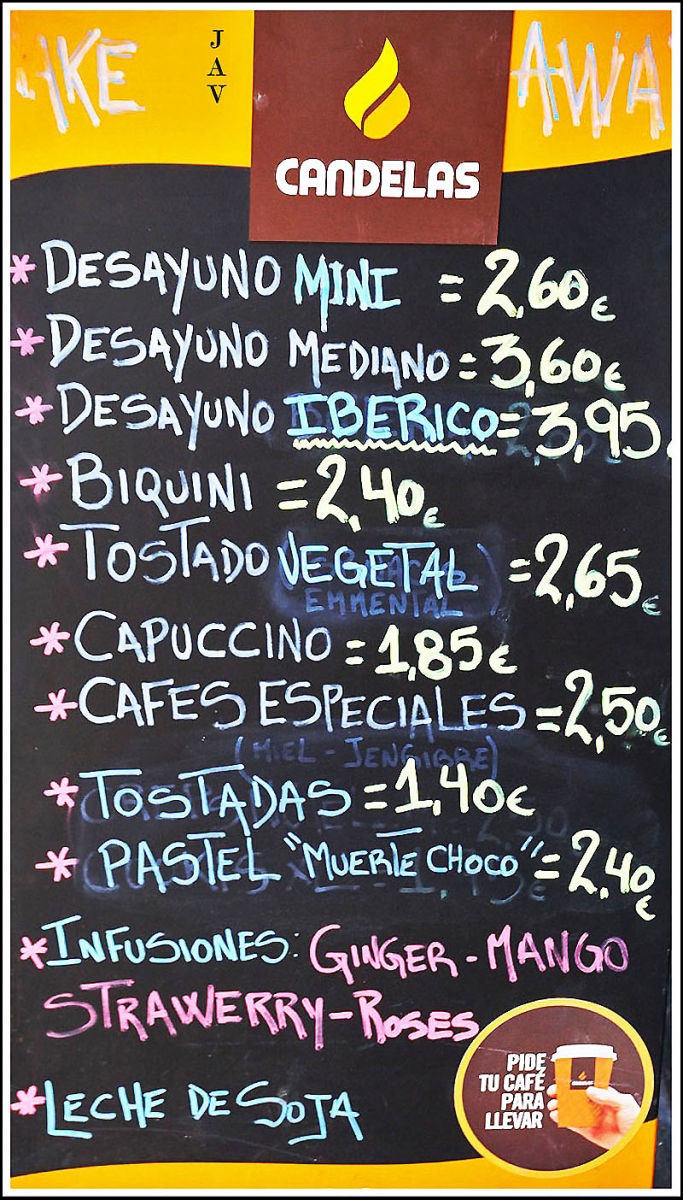 AKE
JAV
AWA
CANDELAS
* DESAYUNO MINI = 2,60€
* DESAYUNO MEDIANO = 3,60€
* DESAYUNO IBERICO = 3,95
* BIQUINI = 2,40€
* TOSTADO VEGETAL = 2,65€
EMMENTAL
* CAPUCCINO = 1,85€
* CAFES ESPECIALES = 2,50€
(MIEL - JENGIBRE)
* TOSTADAS = 1,40€
* PASTEL "MUERTE CHOCO" = 2,40€
* INFUSIONES: GINGER - MANGO
STRAWERRY - ROSES
* LECHE DE SOJA
PIDE
TU CAFÉ
PARA
LLEVAR